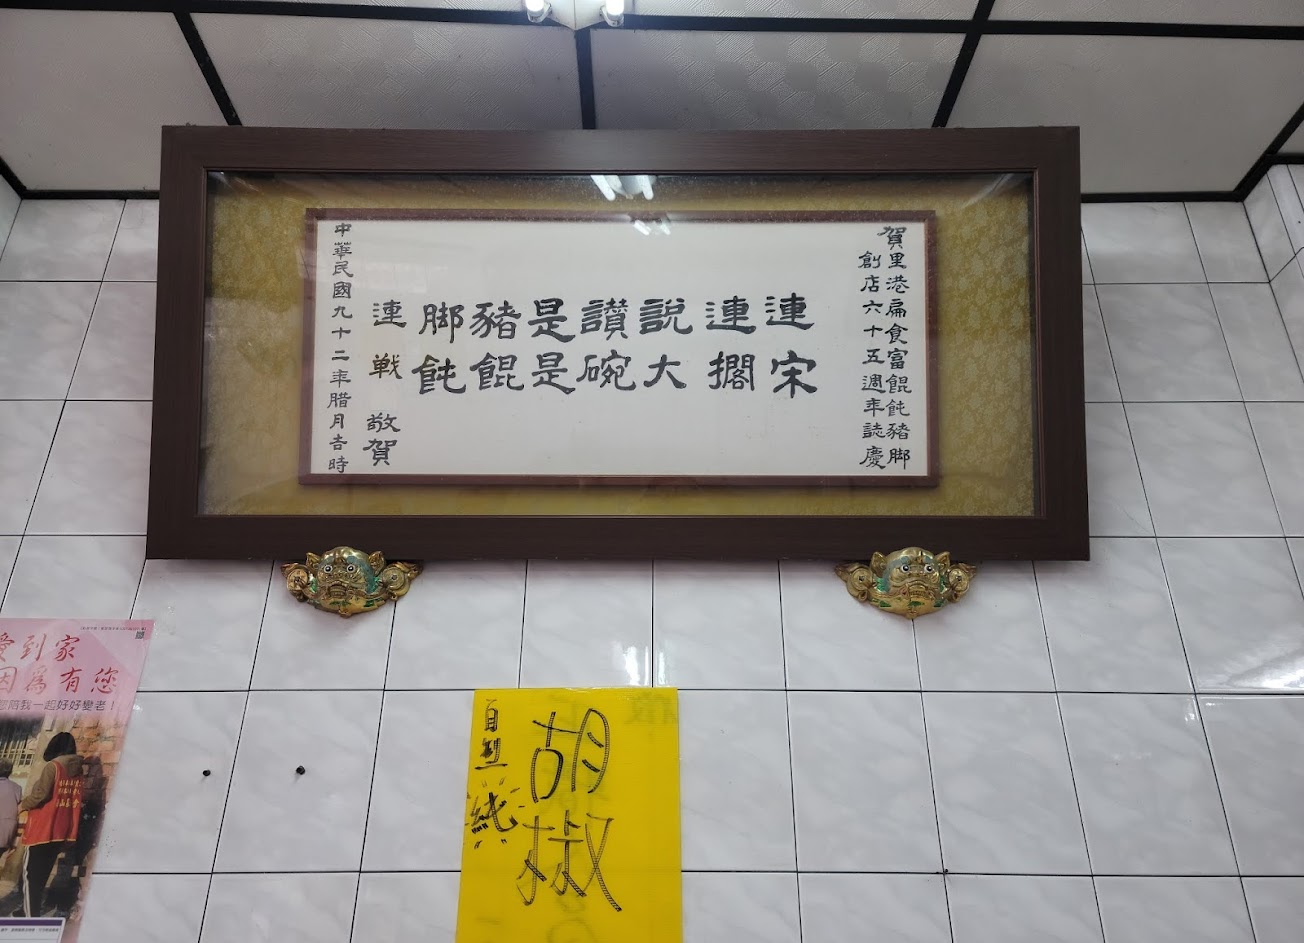 賀里港扁食富餛飩豬脚
創店六十五週年誌慶
連連説讃是豬脚
宋擱大碗是餛飩
連戰 敬賀
中華民國九十二年臘月吉時
愛到家
因為有您
陪我一起好好變老！
胡椒
自然"純"